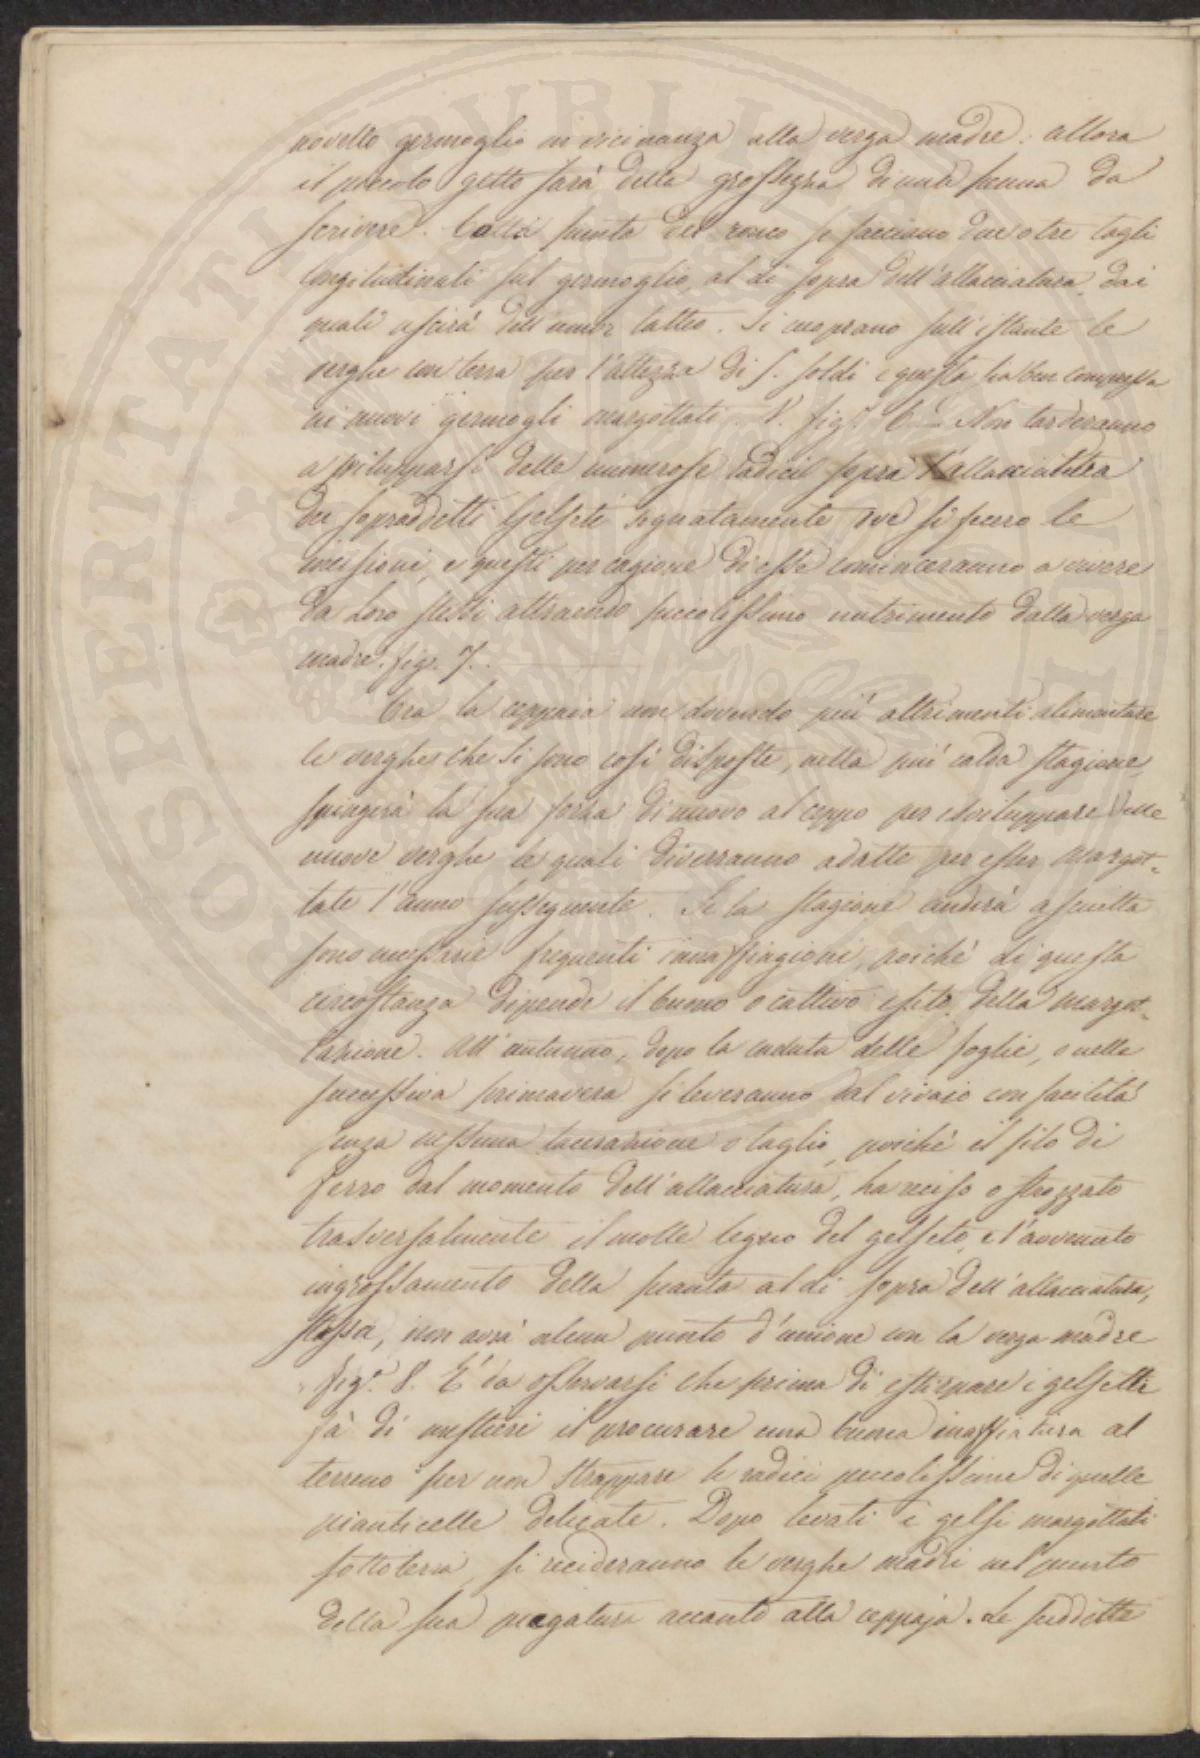 novello germoglio in vicinanza alla verga madre: allora
il piccolo getto sarà della grossezza di una penna da
scrivere. Colla punta del ronco si facciano due o tre tagli
longitudinali sul germoglio, al di sopra dell'allacciatura, dai
quali uscirà dell'umor latteo. Si cuoprano sull'istante le
verghe con terra per l'altezza di 5. soldi e questa sia ben compressa
ai nuovi germogli margottati. V. fig.ª 6.ª Non tarderanno
a svilupparsi delle numerose radici sopra l'allacciatura
dei sopraddetti Gelseti segnatamente ove si fecero le
incisioni, e questi per cagione di esse cominceranno a vivere
da loro stessi attraendo piccolissimo nutrimento dalla verga
madre. fig. 7.
Ora la ceppaia non dovendo più altrimenti alimentare
le verghe che si sono così disposte, nella più calda stagione
spingerà la sua forza di nuovo al ceppo per isviluppare delle
nuove verghe le quali diverranno adatte per esser margot-
tate l'anno susseguente. Se la stagione andrà asciutta
sono necessarie frequenti innaffiagioni, poichè di questa
circostanza dipende il buono o cattivo esito della margot-
tazione. All'autunno, dopo la caduta delle foglie, o nella
successiva primavera si leveranno dal vivaio con facilità
senza nessuna lacerazione o taglio, poichè il filo di
ferro dal momento dell'allacciatura, ha reciso o strozzato
trasversalmente il molle legno del gelseto, e l'avvenuto
ingrossamento della pianta al di sopra dell'allacciatura,
stessa, non avrà alcun punto d'unione con la verga madre
fig.ª 8. E' da osservarsi che prima di estirpare i gelsetti
fà di mestieri il procurare una buona inaffiatura al
terreno per non strappare le radici piccolissime di quelle
pianticelle delicate. Dopo levati i gelsi margottati
sottoterra, si recideranno le verghe madri nel punto
della sua piegatura accanto alla ceppaja. Le suddette
PROSPERITATI PUBLI